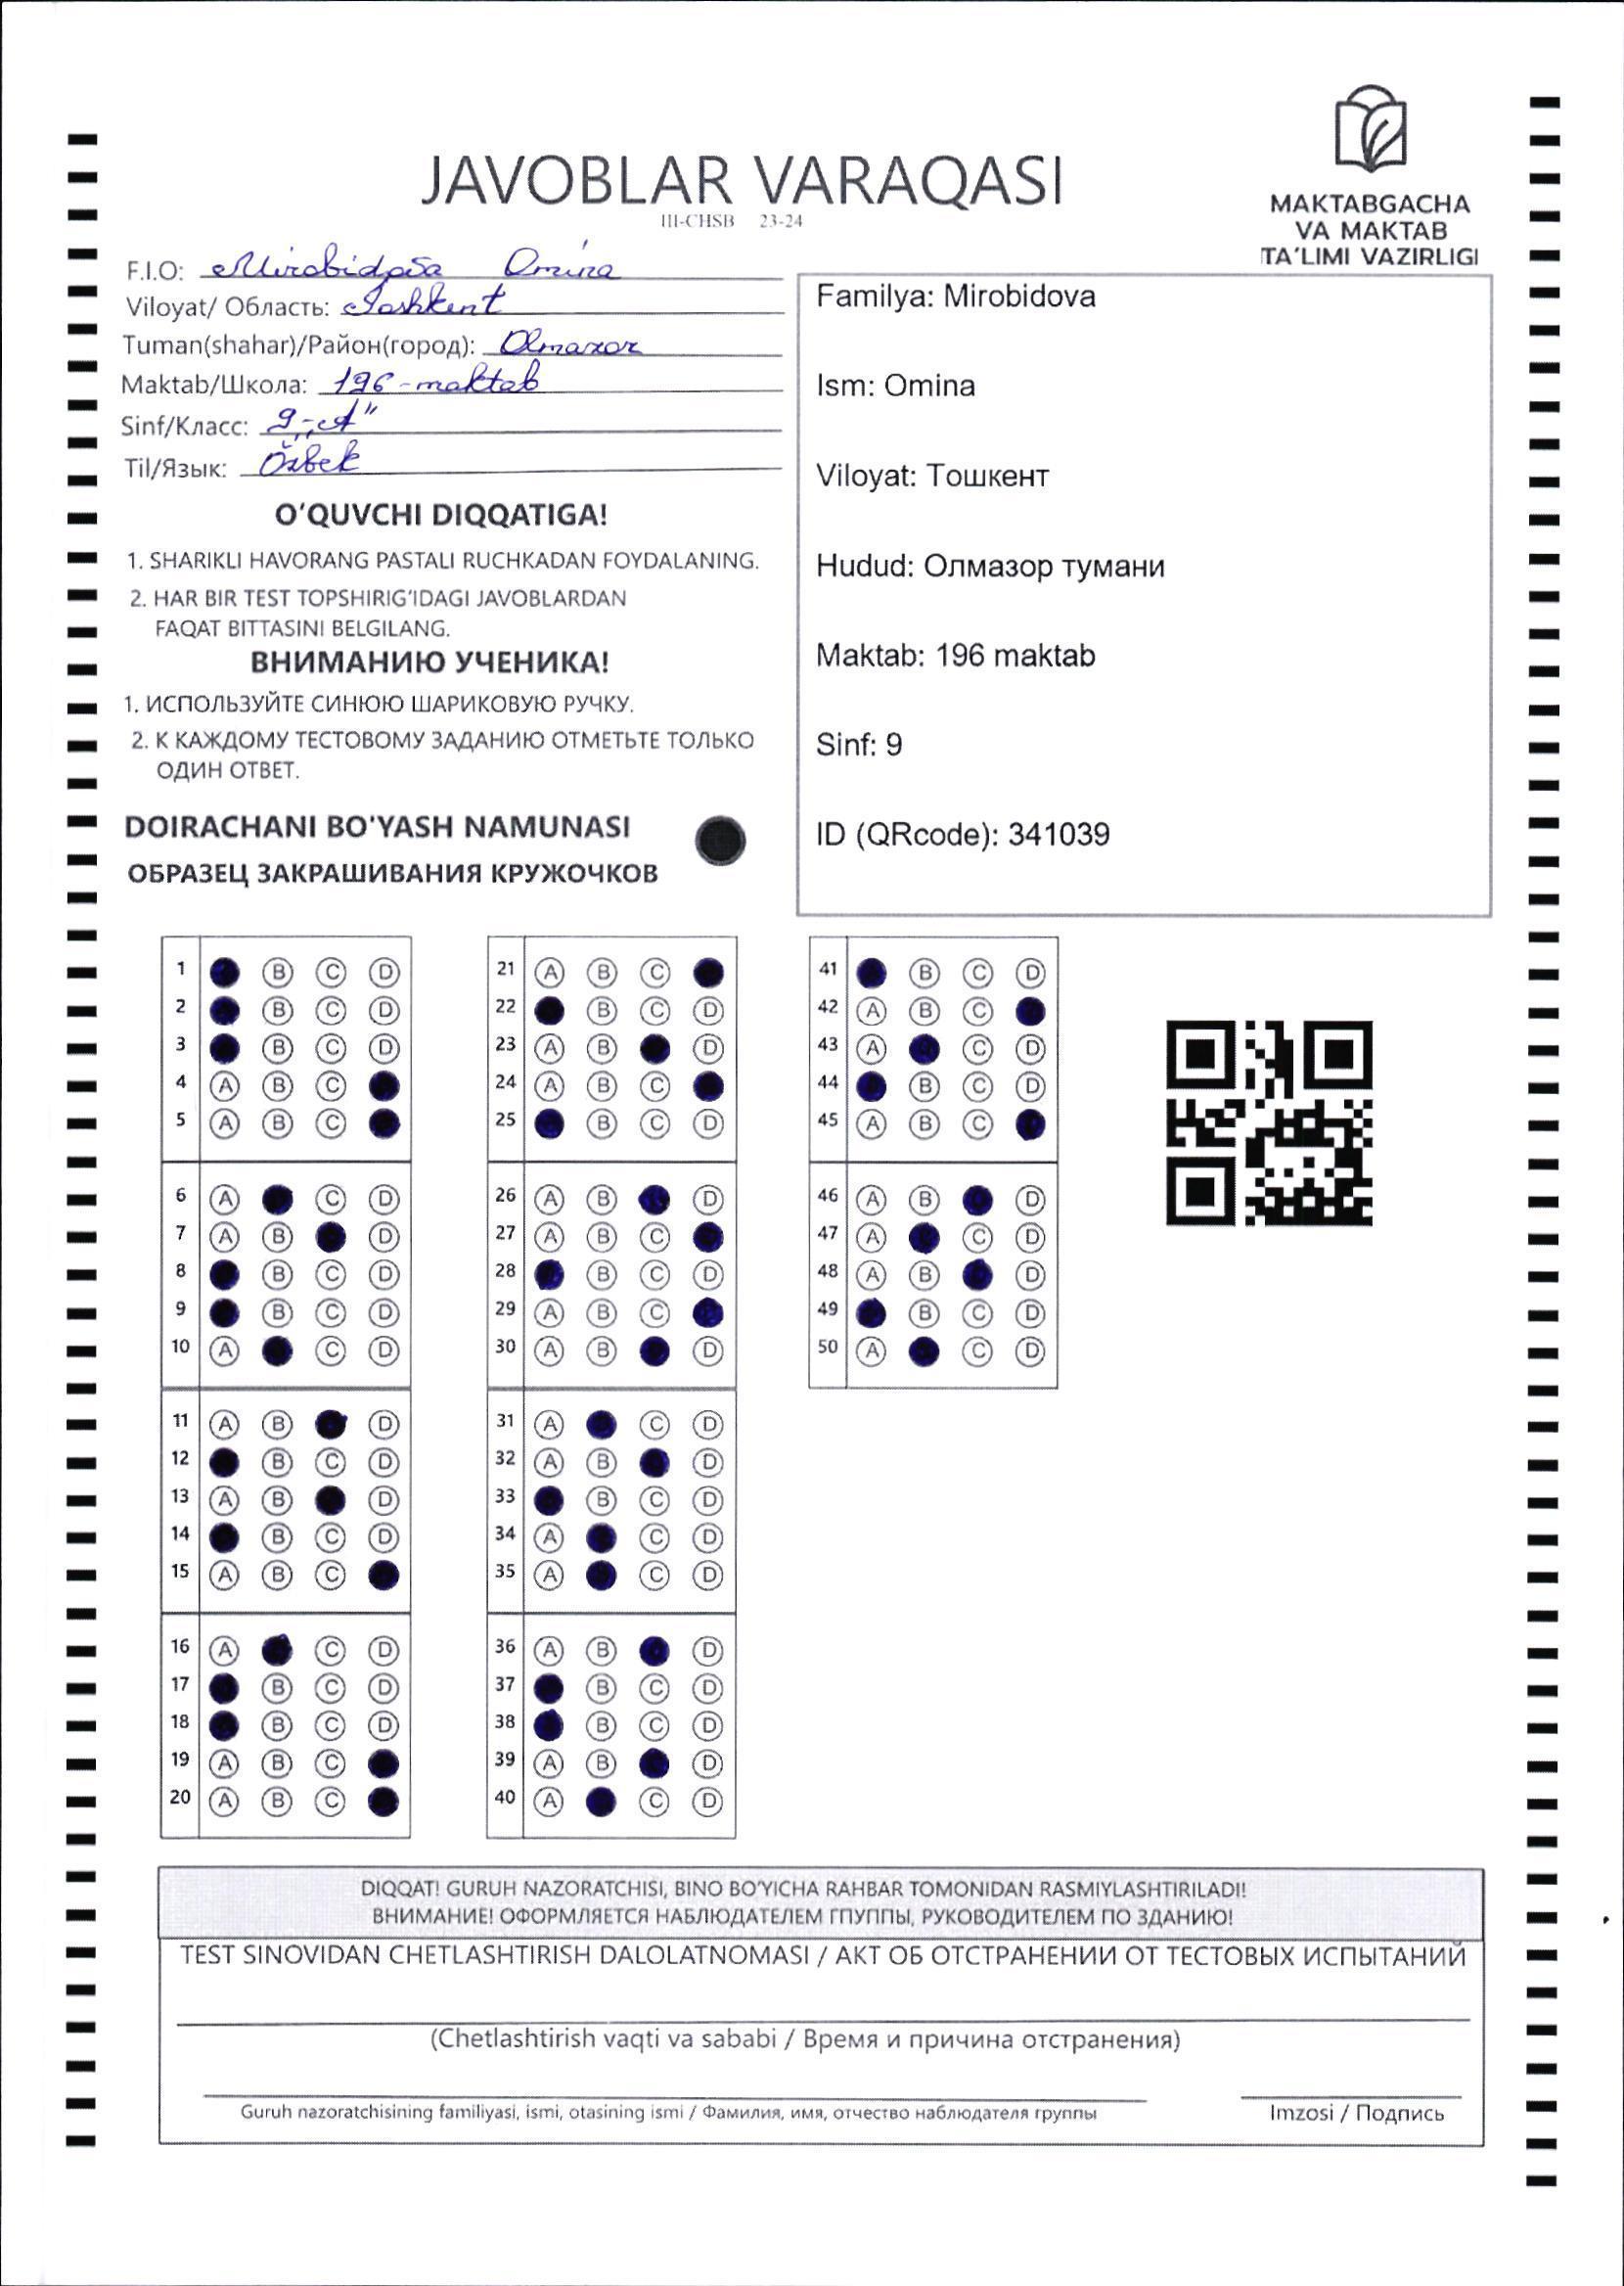 JAVOBLAR VARAQASI
III-CHSB 23-24
MAKTABGACHA
VA MAKTAB
TA'LIMI VAZIRLIGI
F.I.O: Mirobidova Omina
Viloyat/ Область: Toshkent
Tuman(shahar)/Район(город): Olmazor
Maktab/Школа: 196-maktab
Sinf/Класс: 9-„A"
Til/Язык: Özbek
O'QUVCHI DIQQATIGA!
1. SHARIKLI HAVORANG PASTALI RUCHKADAN FOYDALANING.
2. HAR BIR TEST TOPSHIRIG'IDAGI JAVOBLARDAN
FAQAT BITTASINI BELGILANG.
ВНИМАНИЮ УЧЕНИКА!
1. ИСПОЛЬЗУЙТЕ СИНЮЮ ШАРИКОВУЮ РУЧКУ.
2. К КАЖДОМУ ТЕСТОВОМУ ЗАДАНИЮ ОТМЕТЬТЕ ТОЛЬКО
ОДИН ОТВЕТ.
DOIRACHANI BO'YASH NAMUNASI
ОБРАЗЕЦ ЗАКРАШИВАНИЯ КРУЖОЧКОВ
Familya: Mirobidova
Ism: Omina
Viloyat: Тошкент
Hudud: Олмазор тумани
Maktab: 196 maktab
Sinf: 9
ID (QRcode): 341039
1 B C D
2 B C D
3 B C D
4 A B C
5 A B C
6 A C D
7 A B D
8 B C D
9 B C D
10 A C D
11 A B D
12 B C D
13 A B D
14 B C D
15 A B C
16 A C D
17 B C D
18 B C D
19 A B C
20 A B C
21 A B C
22 B C D
23 A B D
24 A B C
25 B C D
26 A B D
27 A B C
28 B C D
29 A B C
30 A B D
31 A C D
32 A B D
33 B C D
34 A C D
35 A C D
36 A B D
37 B C D
38 B C D
39 A B D
40 A C D
41 B C D
42 A B C
43 A C D
44 B C D
45 A B C
46 A B D
47 A C D
48 A B D
49 B C D
50 A C D
DIQQAT! GURUH NAZORATCHISI, BINO BO'YICHA RAHBAR TOMONIDAN RASMIYLASHTIRILADI!
ВНИМАНИЕ! ОФОРМЛЯЕТСЯ НАБЛЮДАТЕЛЕМ ГПУППЫ, РУКОВОДИТЕЛЕМ ПО ЗДАНИЮ!
TEST SINOVIDAN CHETLASHTIRISH DALOLATNOMASI / АКТ ОБ ОТСТРАНЕНИИ ОТ ТЕСТОВЫХ ИСПЫТАНИЙ
(Chetlashtirish vaqti va sababi / Время и причина отстранения)
Guruh nazoratchisining familiyasi, ismi, otasining ismi / Фамилия, имя, отчество наблюдателя группы
Imzosi / Подпись